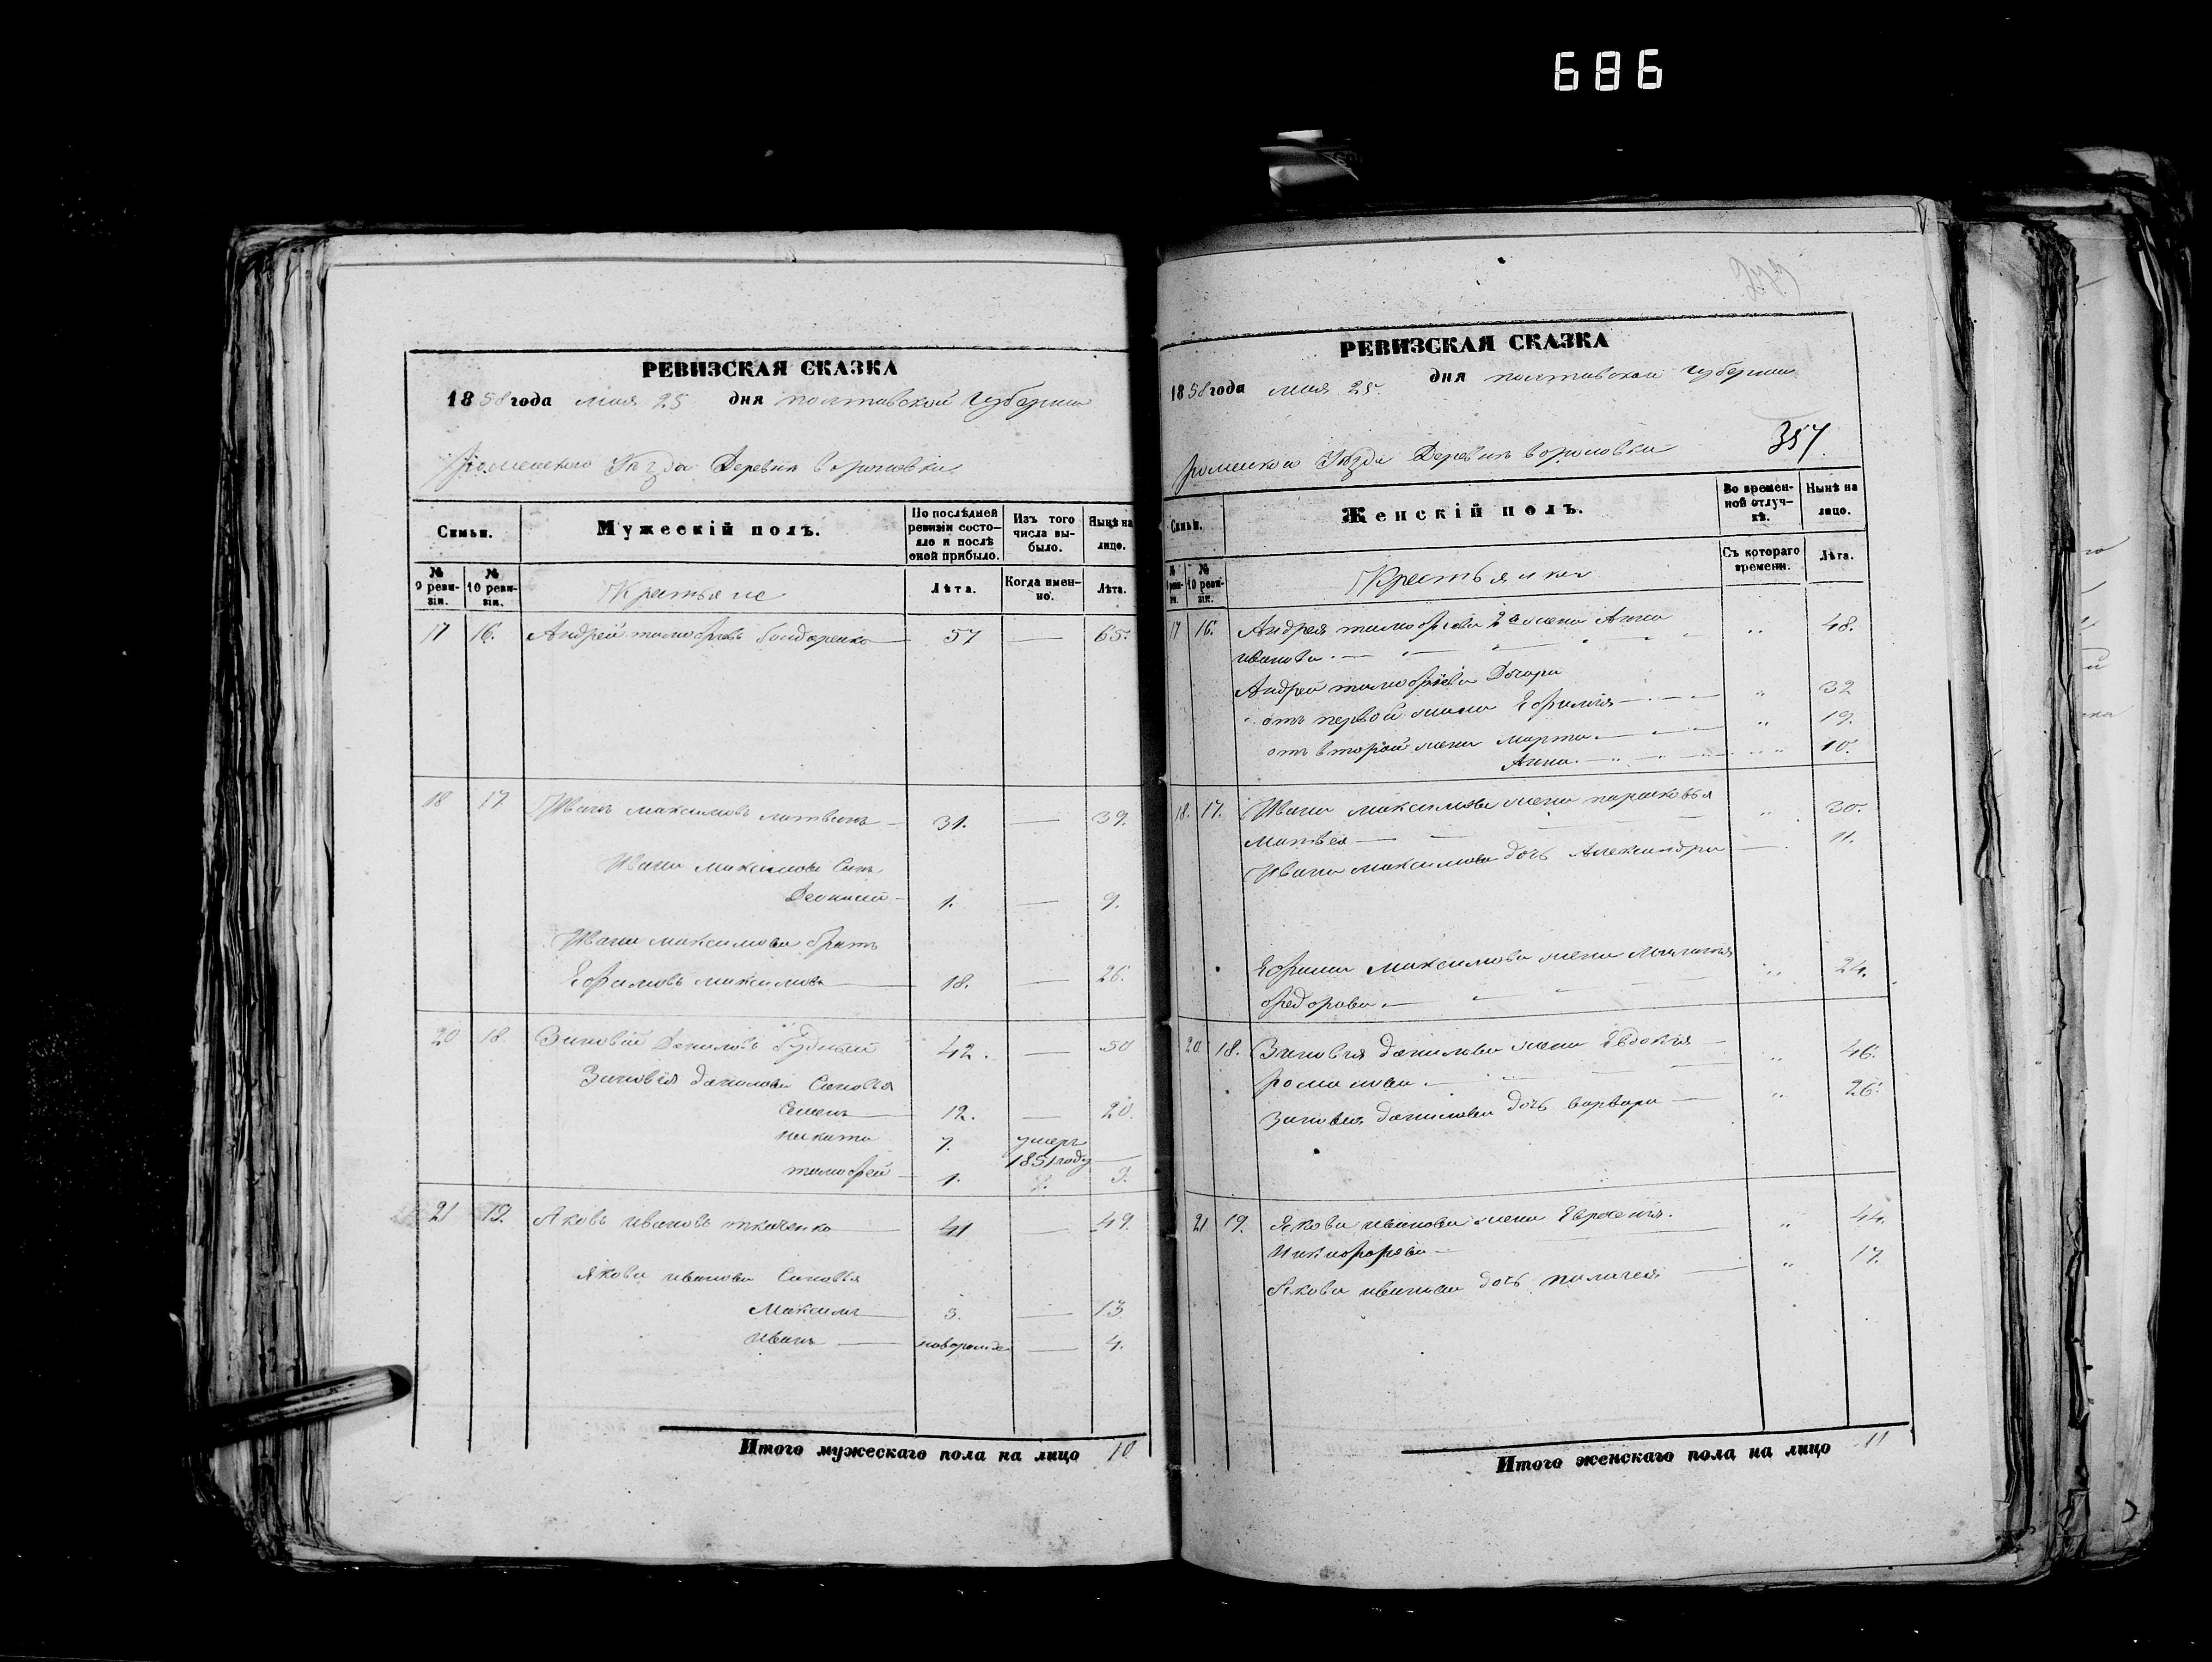 686
РЕВИЗСКАЯ СКАЗКА
1858 года мая 25 дня полтавской Губернии
роменского Уѣзда Деревни вороновки
Симьи. Мужескій полъ. По послѣдней ревизіи состояло и послѣ оной прибыло. Изъ того числа выбыло. Нынѣ на лицо.
№ 9 ревизіи. № 10 ревизіи. Крестьяне Лѣта. Когда именно. Лѣта.
17 16. Андрей тимофѣевъ бондаренко 57 — 65.
18 17 Иванъ максимовъ литвинъ 31. — 39.
Ивана максимова Сынъ
1. — 9.
Ивана максимова братъ
Ефимовъ максимовъ 18. — 26.
20 18. Зиновій Даниловъ 42. — 50
Зиновія данилова Сыновья
Семенъ 12. — 20.
никита 7. умеръ
1851 году
тимофей 1. 9.
21 19. Яковъ ивановъ ткаченко 41 — 49.
Якова иванова Сыновья
Максимъ 5. — 13
иванъ новорожде — 4.
Итого мужескаго пола на лицо 10
РЕВИЗСКАЯ СКАЗКА
1858 года мая 25. дня полтавской губернии
357.
роменкой Уѣзда Деревни вороновки
Симьи. Женскій полъ. Во временной отлучкѣ. Нынѣ на лицо.
№ 9 ревизіи. № 10 ревизіи. Крестьянки Съ котораго времени. Лѣта.
17 16. Андрея тимофеева 2я жена Анна „ 48.
иванова. —
Андрея тимофеева Дочери
отъ первой жены Ефимия „ 32
отъ второй жены марта „ 19.
Анна „ 10.
18. 17. Ивана максимова жена парасковья „ 30.
Матвея —
Ивана максимова дочь Александра — 11.
Ефима Максимова жена „ 24.
федорова. —
20 18. Зиновия данилова жена Евдокия „ 46.
романова. —
Зиновия данилова дочь варвара „ 26.
21 19. Якова иванова жена Евросения. „ 44.
Никифорова —
Якова иванова дочь палагея „ 17.
Итого женскаго пола на лицо 11